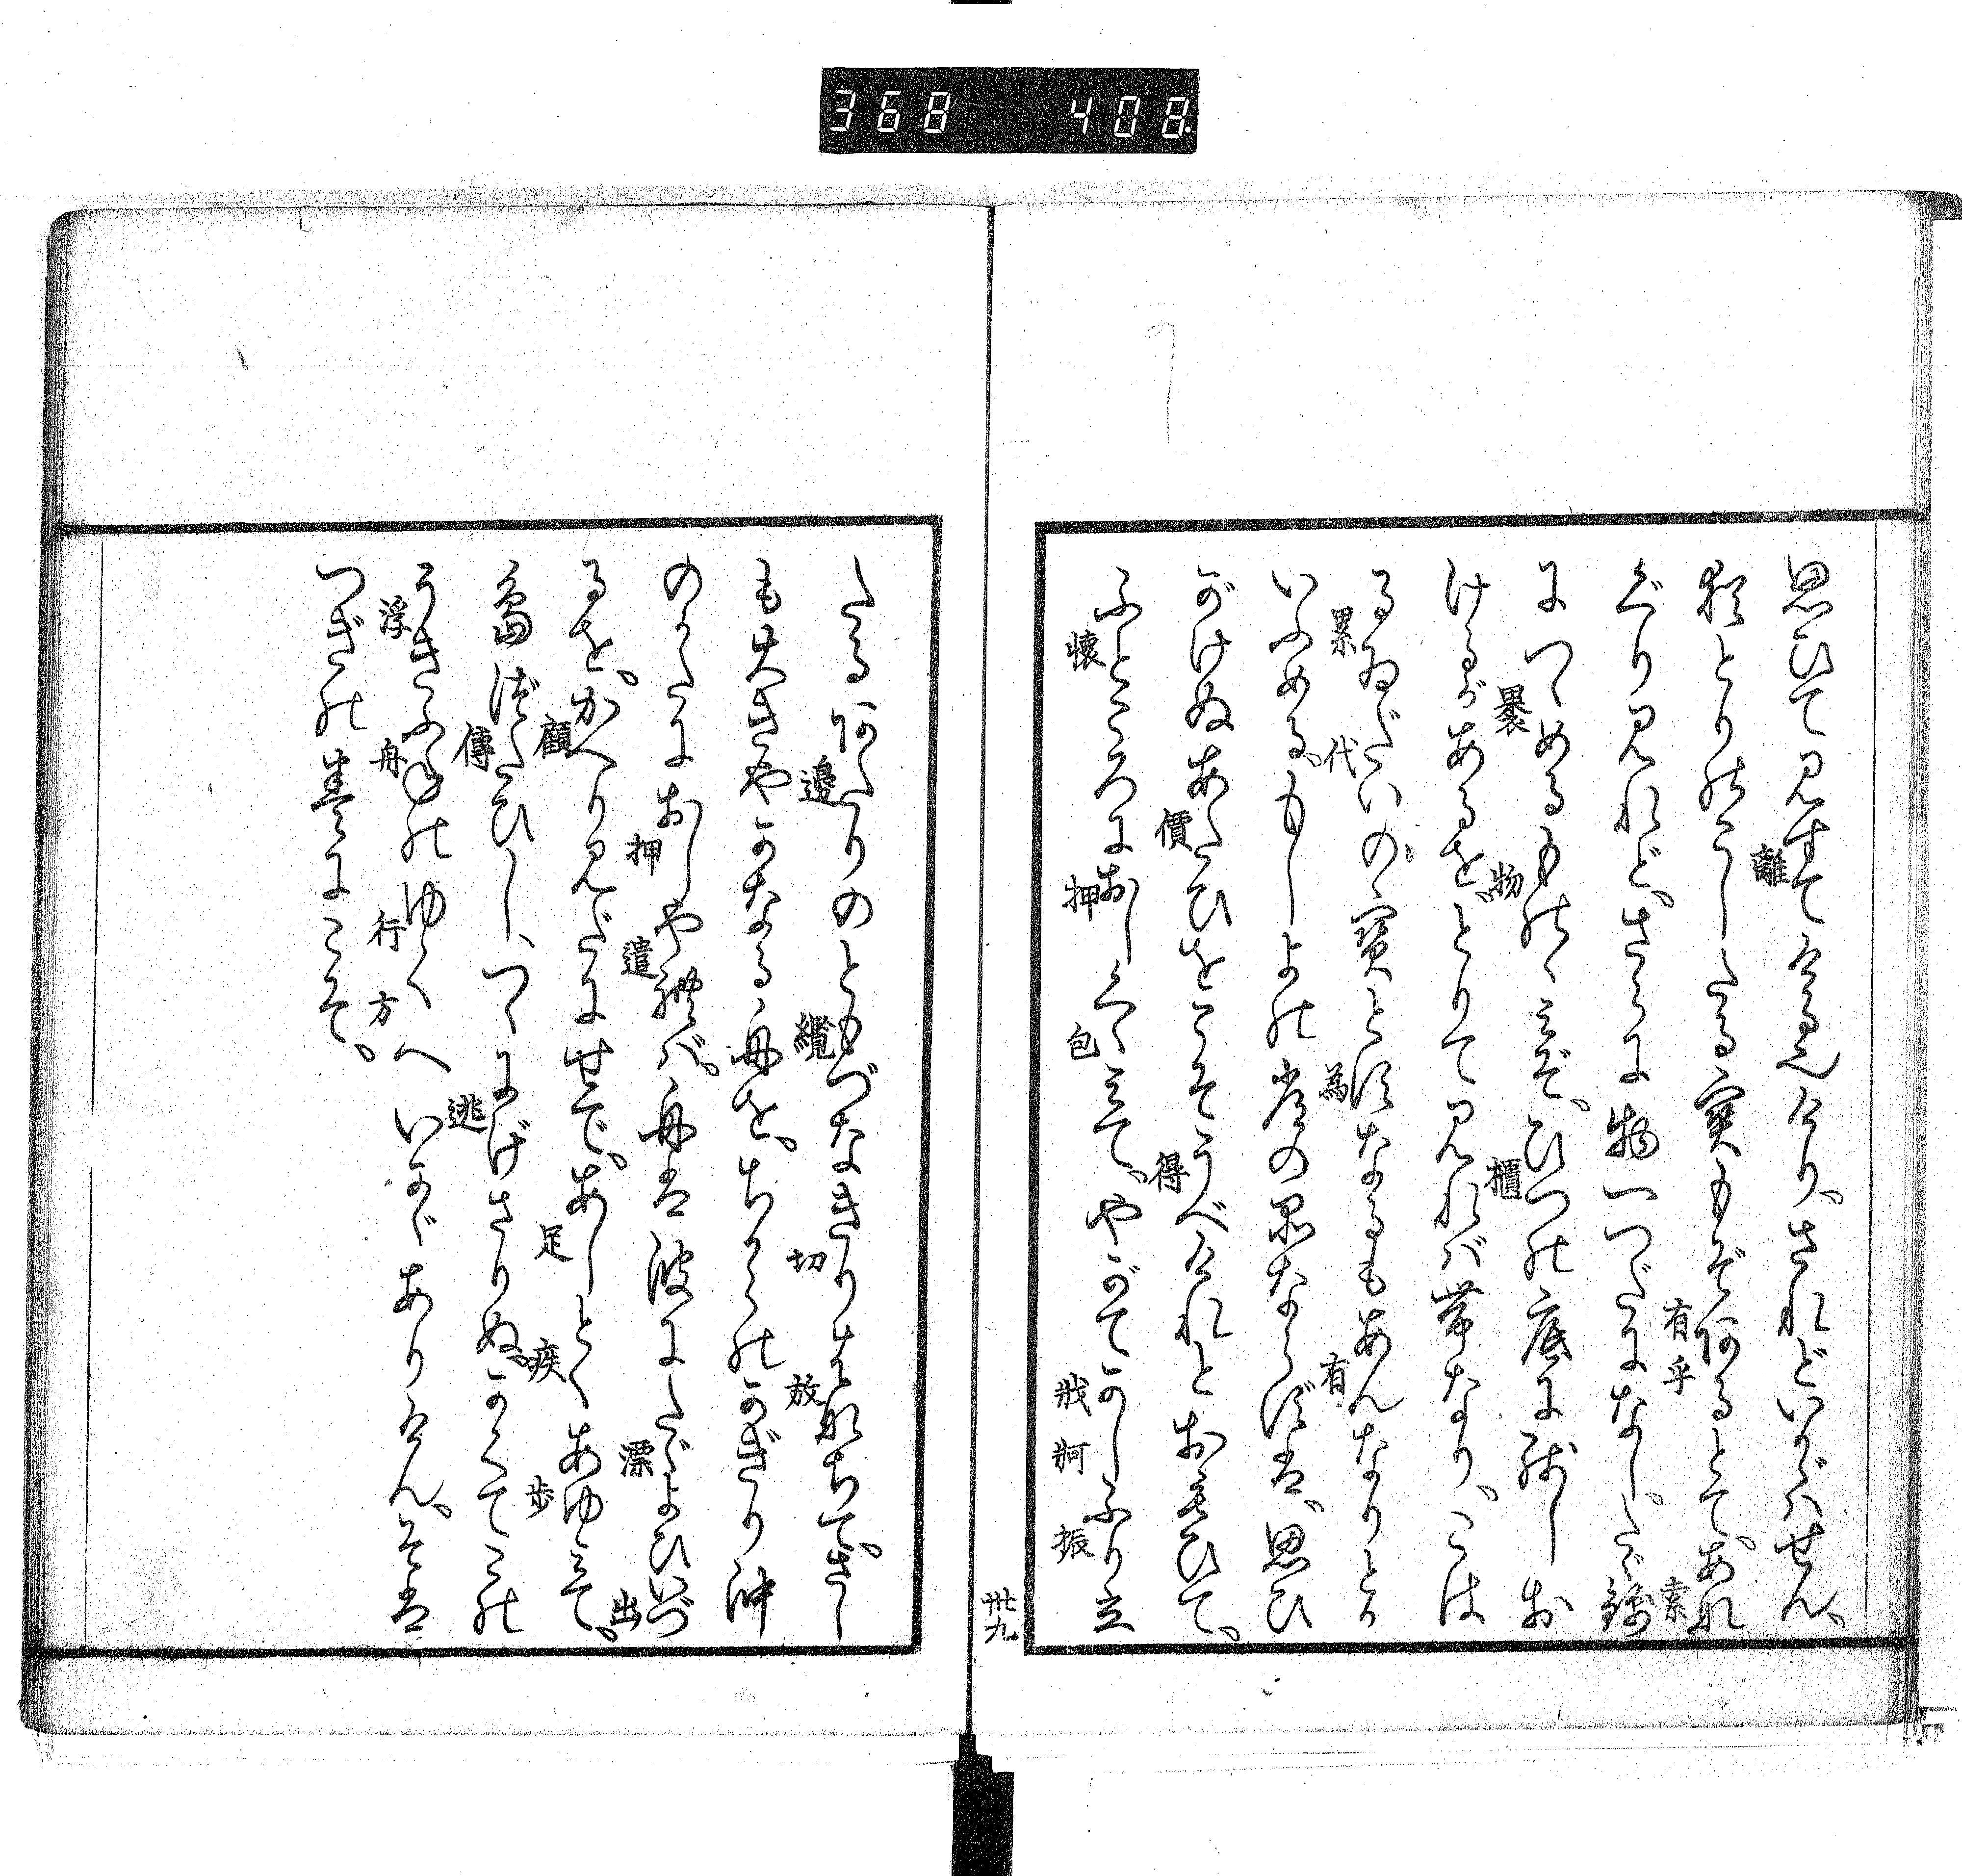 368 408
思ひて見すてける也けり、されどいかゞはせん、
離
猶とりのこしたる宝もぞあるとて、あな
有乎
ぐり見れど、さらに物一つだになし、たゞ錦
索
につゝめるものゝみぞ、ひつの底に残しお
裹 物 櫃
けるがあるを、とりて見れば帯なり、こは
るゐだいの宝とすなるもあんなりとか
累代 為 有
いふめる、もしよの常の品ならずは、思ひ
がけぬあたひをこそうべけれとおもひて、
價 得
ふところにおしつゝみて、やがてかしふり立
懐 押 包 戕牁 振
卅九
たるあたりのともづなきりはなちて、さし
邊 纜 切 放
も大きやかなる舟を、ちからのかぎり沖
のかたにおしやれば、舟は波にたゞよひいづ
押 遣 漂 出
るを、かへり見だにせで、あしとくあゆみて、
顧 足 疾 歩
島づたひし、つゝにげさりぬ、かくてこの
傳 逃
うきふねのゆくへいかゞありけん、そは
浮 舟 行方
つぎの巻にこそ、